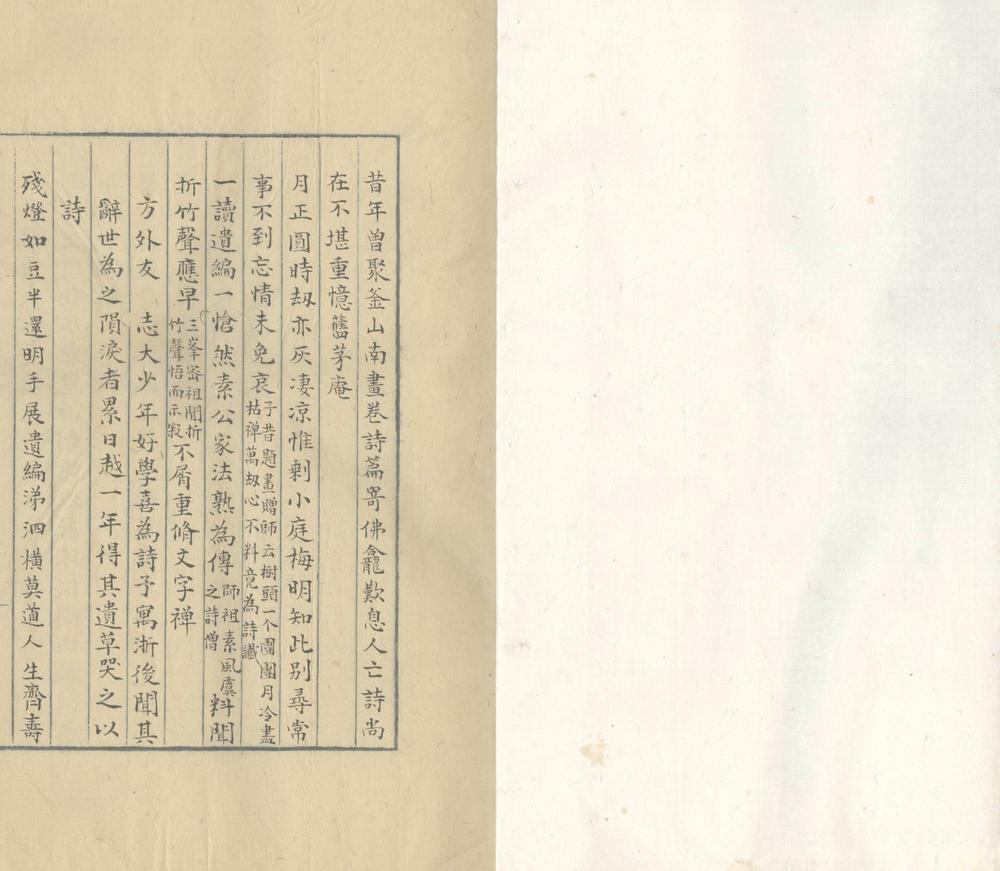 昔年曾聚釜山南畫卷詩篇寄佛龕歎息人亡詩尚
在不堪重憶舊茅庵
月正圓時刼亦灰凄涼惟剩小庭梅明知此別尋常
事不到忘情未免哀子昔題畫贈師云樹頭一个團團月冷盡枯禅萬刼心不料竟為詩讖
一讀遺編一愴然素公家法熟為傳師祖素風虞之詩僧料聞
折竹聲應早三峯宻祖聞折竹聲悟而示寂不屑重脩文字禅
方外友 志大少年好學喜為詩予寓浙後聞其
辭世為之隕淚者累日越一年得其遺草哭之以
詩
殘燈如豆半還明手展遺編涕泗橫莫道人生齊壽